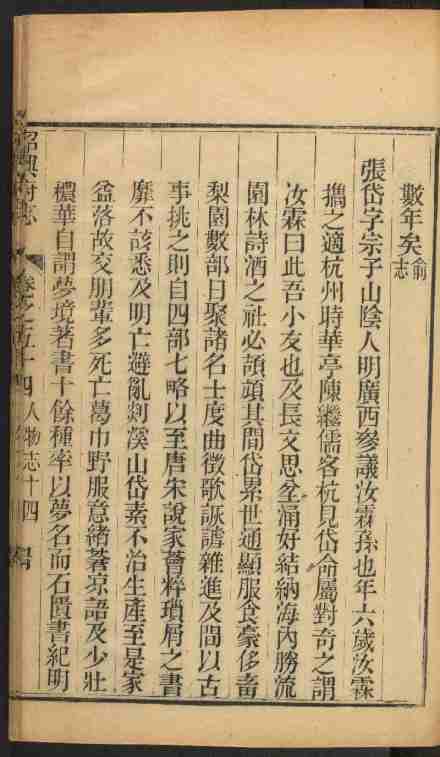 數年矣俞志
張岱字宗子山陰人明廣西參議汝霖孫也年六歲汝霖
攜之適杭州時華亭陳繼儒客杭見岱命屬對奇之謂
汝霖曰此吾小友也及長文思坌涌好結納海內勝流
園林詩酒之社必頡頏其間岱累世通顯服食豪侈畜
梨園數部日聚諸名士度曲徵歌詼諧雜進及間以古
事挑之則自四部七略以至唐宋說家薈粹瑣屑之書
靡不該悉及明亡避亂剡溪山岱素不治生產至是家
益落故交朋輩多死亡葛巾野服意緒蒼涼語及少壯
穠華自謂夢境著書十餘種率以夢名而石匱書紀明
紹興府志 卷之五十四 人物志十四